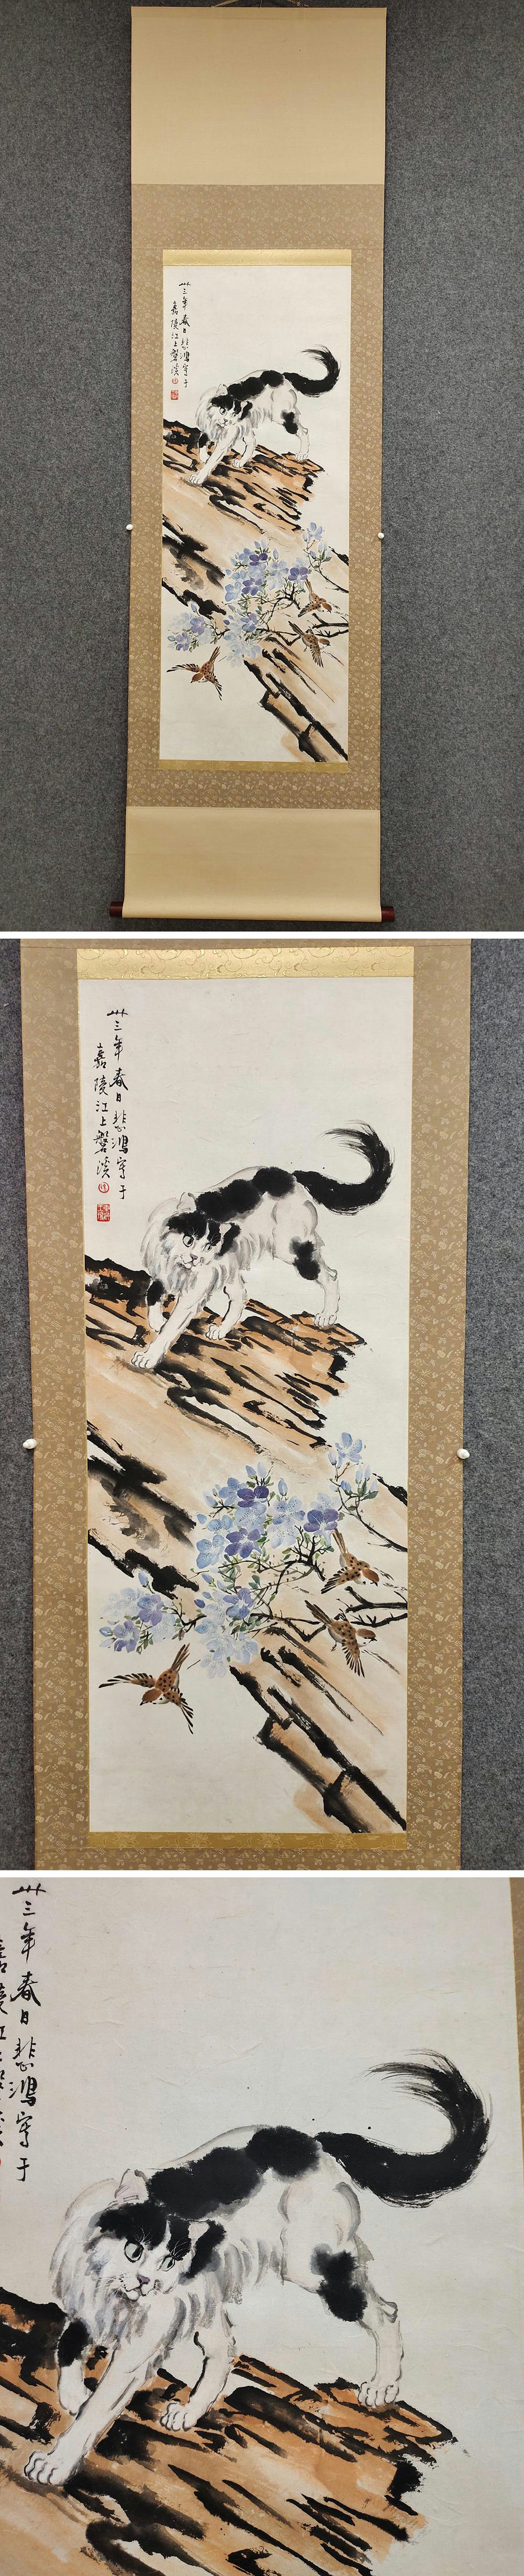 卅三年春日悲鴻寫于
嘉陵江上磐溪
卅三年春日悲鴻寫于
嘉陵江上磐溪
卅三年春日悲鴻寫于